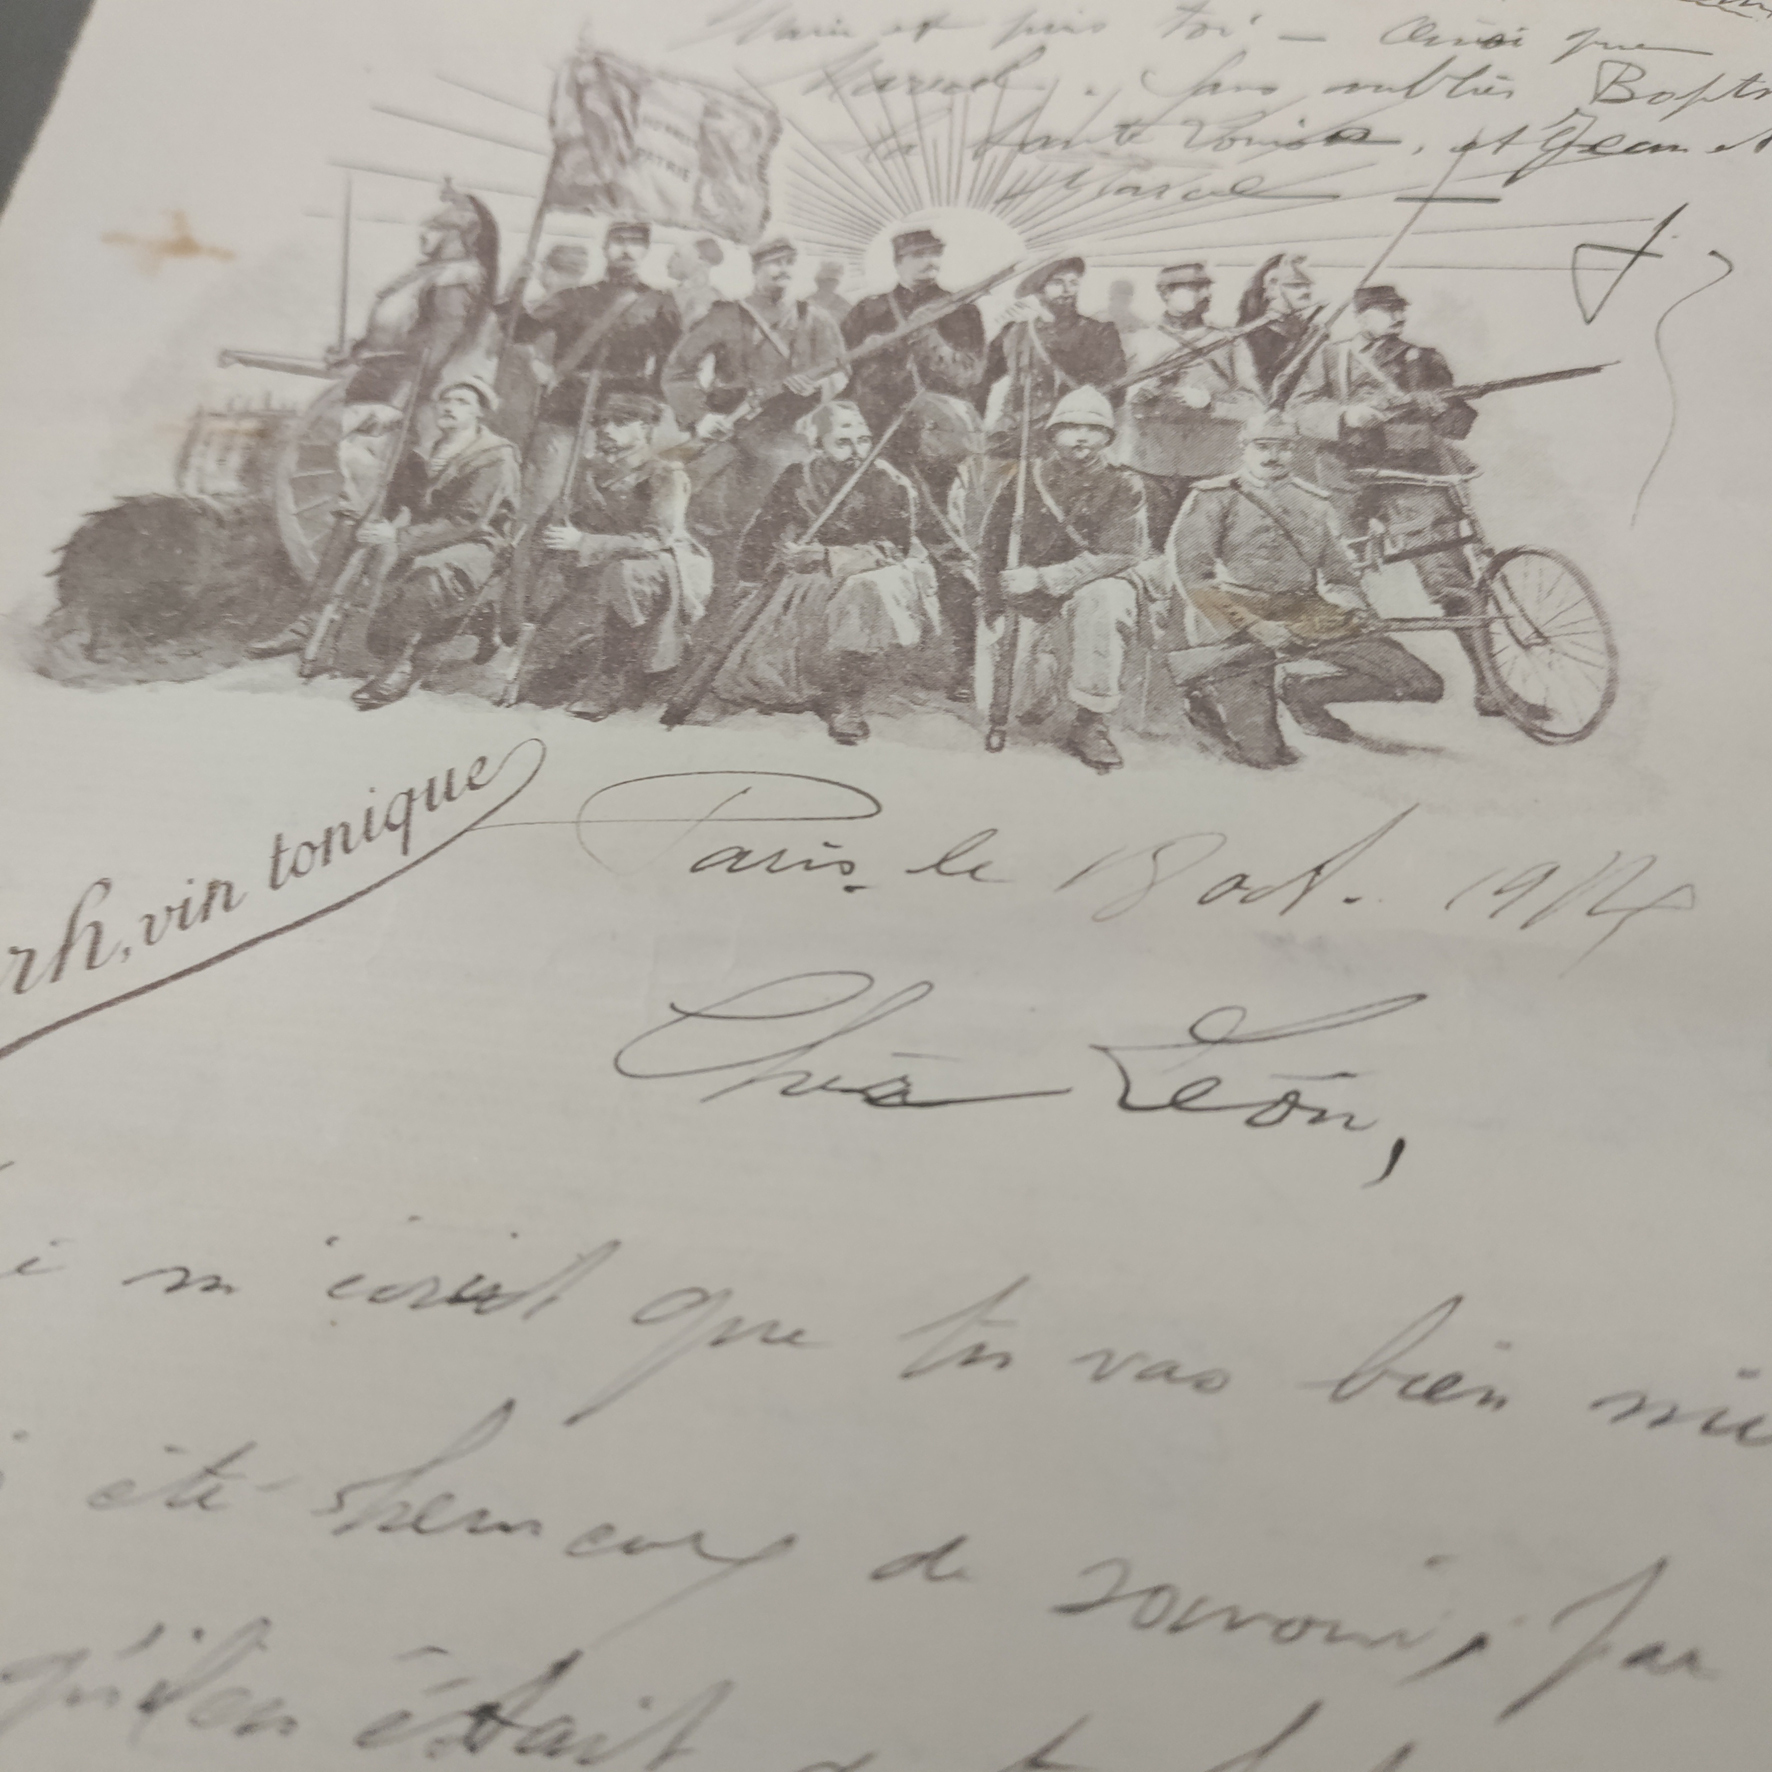 Marie et puis toi – Ainsi que
Marcel. Sans oublier
la tante Louise, et Jean et
Marcel —
HONNEUR
PATRIE
rh, vin tonique
Paris le 18 oct. 1914
Cher Léon,
i m'écrit que tu vas bien mie
été heureux de savoir, par
qu'il en était